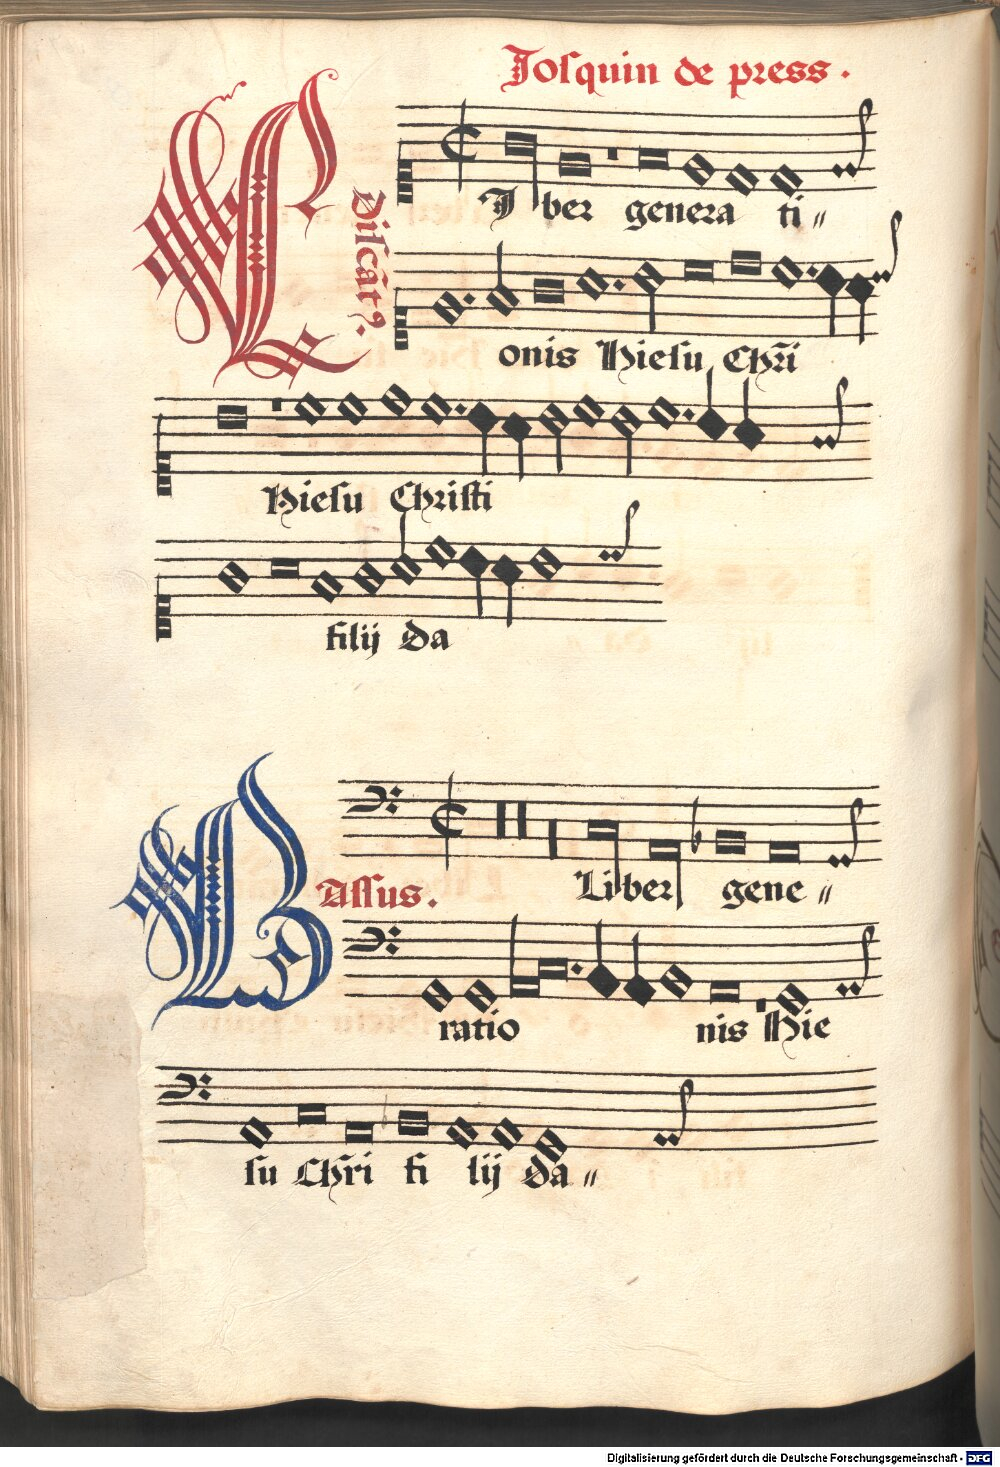 Josquin de press.
LIber generati〃
Discãt9.
onis Hiesu Chr̃i
Hiesu Christi
filij da
Bassus.
Liber gene〃
ratio nis Hie
su Chr̃i fi lij da〃
Digitalisierung gefördert durch die Deutsche Forschungsgemeinschaft - DFG